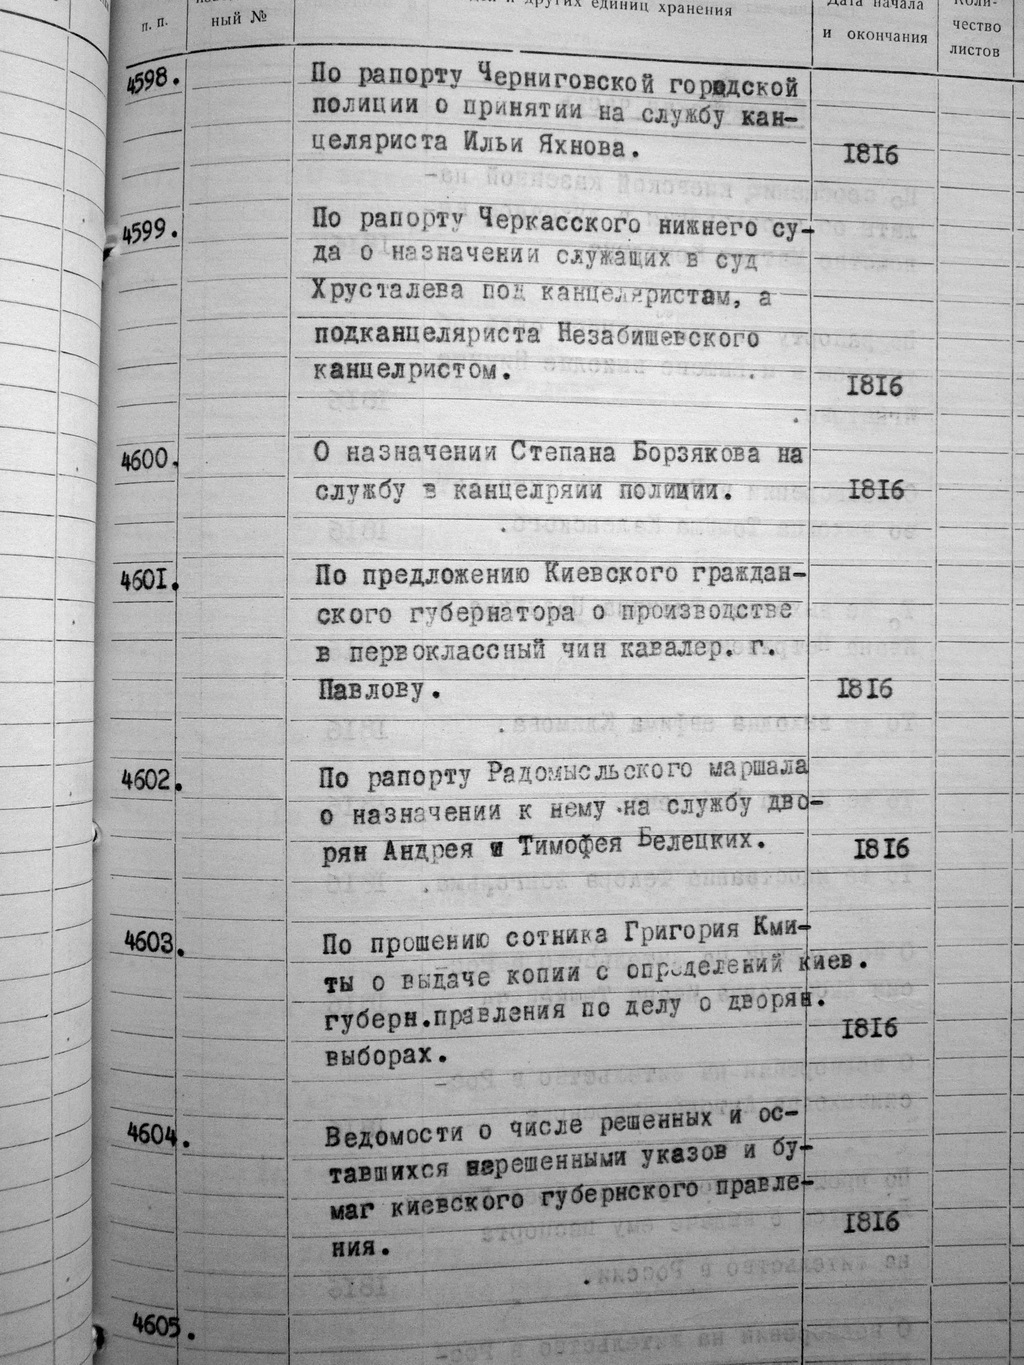 п. п.
ный №
и других единиц хранения
Дата начала
и окончания
Коли-
чество
листов
4598. По рапорту Черниговской городской
полиции о принятии на службу кан-
целяриста Ильи Яхнова. 1816
4599. По рапорту Черкасского нижнего су-
да о назначении служащих в суд
Хрусталева под канцеляристам, а
подканцеляриста Незабишевского
канцелристом. 1816
4600. О назначении Степана Борзякова на
службу в канцелряии полиции. 1816
4601. По предложению Киевского граждан-
ского губернатора о производстве
в первоклассный чин кавалер. г.
Павлову. 1816
4602. По рапорту Радомысльского маршала
о назначении к нему на службу дво-
рян Андрея и Тимофея Белецких. 1816
4603. По прошению сотника Григория Кми-
ты о выдаче копии с определений киев.
губерн.правления по делу о дворян.
выборах. 1816
4604. Ведомости о числе решенных и ос-
тавшихся нерешенными указов и бу-
маг киевского губернского правле-
ния. 1816
4605.